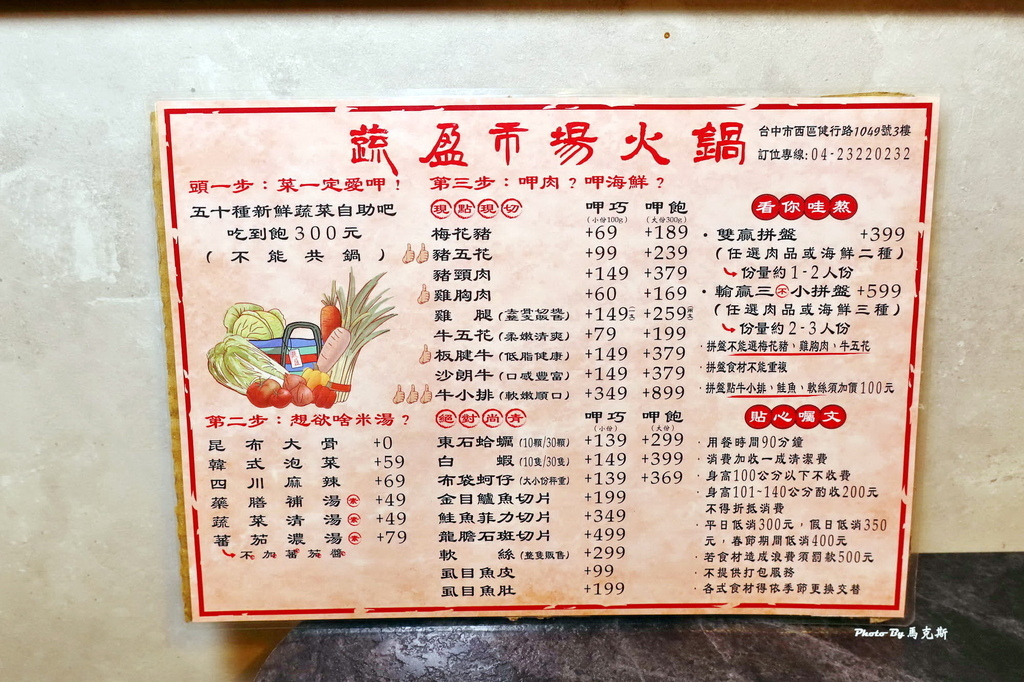 蔬盈市場火鍋
台中市西區健行路1049號3樓
訂位專線:04-23220232
頭一步：菜一定愛呷！
五十種新鮮蔬菜自助吧
吃到飽300元
(不能共鍋)
第二步：想欲啥米湯？
昆布大骨 +0
韓式泡菜 +59
四川麻辣 +69
藥膳補湯 素 +49
蔬菜清湯 素 +49
蕃茄濃湯 素 +79
不加蕃茄醬
第三步：呷肉？呷海鮮？
現點現切 呷巧 呷飽
(小份100g) (大份300g)
梅花豬 +69 +189
豬五花 +99 +239
豬頸肉 +149 +379
雞胸肉 +60 +169
雞腿 +149 +259
牛五花(柔嫩清爽) +79 +199
板腱牛(低脂健康) +149 +379
沙朗牛(口感豐富) +149 +379
牛小排(軟嫩順口) +349 +899
絕對尚青 呷巧 呷飽
(小份) (大份)
東石蛤蠣(10顆/30顆) +139 +299
白蝦(10隻/30隻) +149 +399
布袋蚵仔(大小份秤重) +139 +369
金目鱸魚切片 +199
鮭魚菲力切片 +349
龍膽石斑切片 +499
軟絲(整隻販售) +299
虱目魚皮 +99
虱目魚肚 +199
看你哇熬
·雙贏拼盤 +399
(任選肉品或海鮮二種)
份量約1-2人份
·輸贏三不小拼盤 +599
(任選肉品或海鮮三種)
份量約2-3人份
·拼盤不能選梅花豬、雞胸肉、牛五花
·拼盤食材不能重複
·拼盤點牛小排、鮭魚、軟絲須加價100元
貼心囑文
·用餐時間90分鐘
·消費加收一成清潔費
·身高100公分以下不收費
·身高101~140公分酌收200元
不得折抵消費
·平日低消300元，假日低消350
元，春節期間低消400元
·若食材造成浪費須罰款500元
·不提供打包服務
·各式食材得依季節更換交替
Photo By 馬克斯